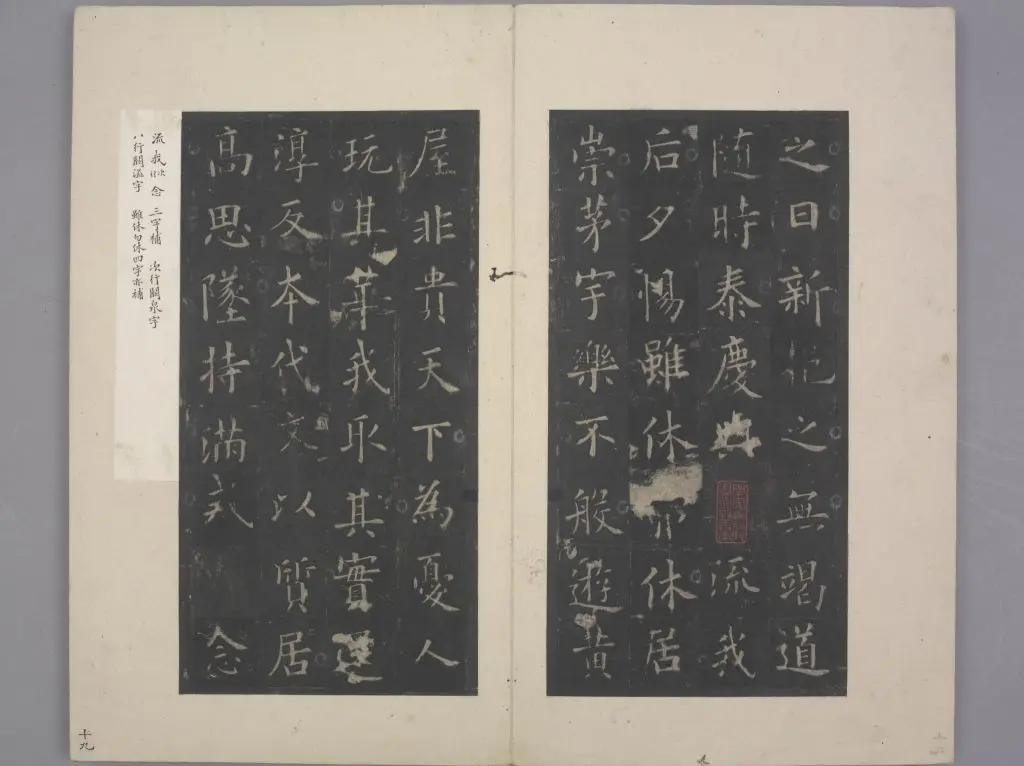 之日新挹之無竭道
随時泰慶與流我
后夕惕雖休休居
崇茅宇樂不般遊黃
屋非貴天下為憂人
玩其華我取其實還
淳反本代文以質居
高思墜持滿戒念
流我念三字補 次行闕泉字
八行闕溢字 雖休勿休四字亦補
十九